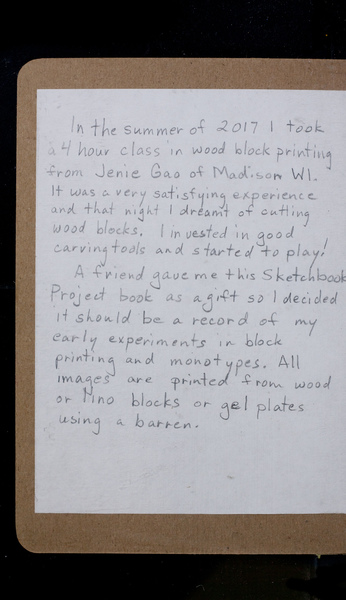 In the summer of 2017 I took
a 4 hour class in wood block printing
from Jenie Gao of Madison WI.
It was a very satisfying experience
and that night I dreamt of cutting
wood blocks. I invested in good
carving tools and started to play!
A friend gave me this Sketchbook
Project book as a gift so I decided
it should be a record of my
early experiments in block
printing and monotypes. All
images are printed from wood
or lino blocks or gel plates
using a barren.